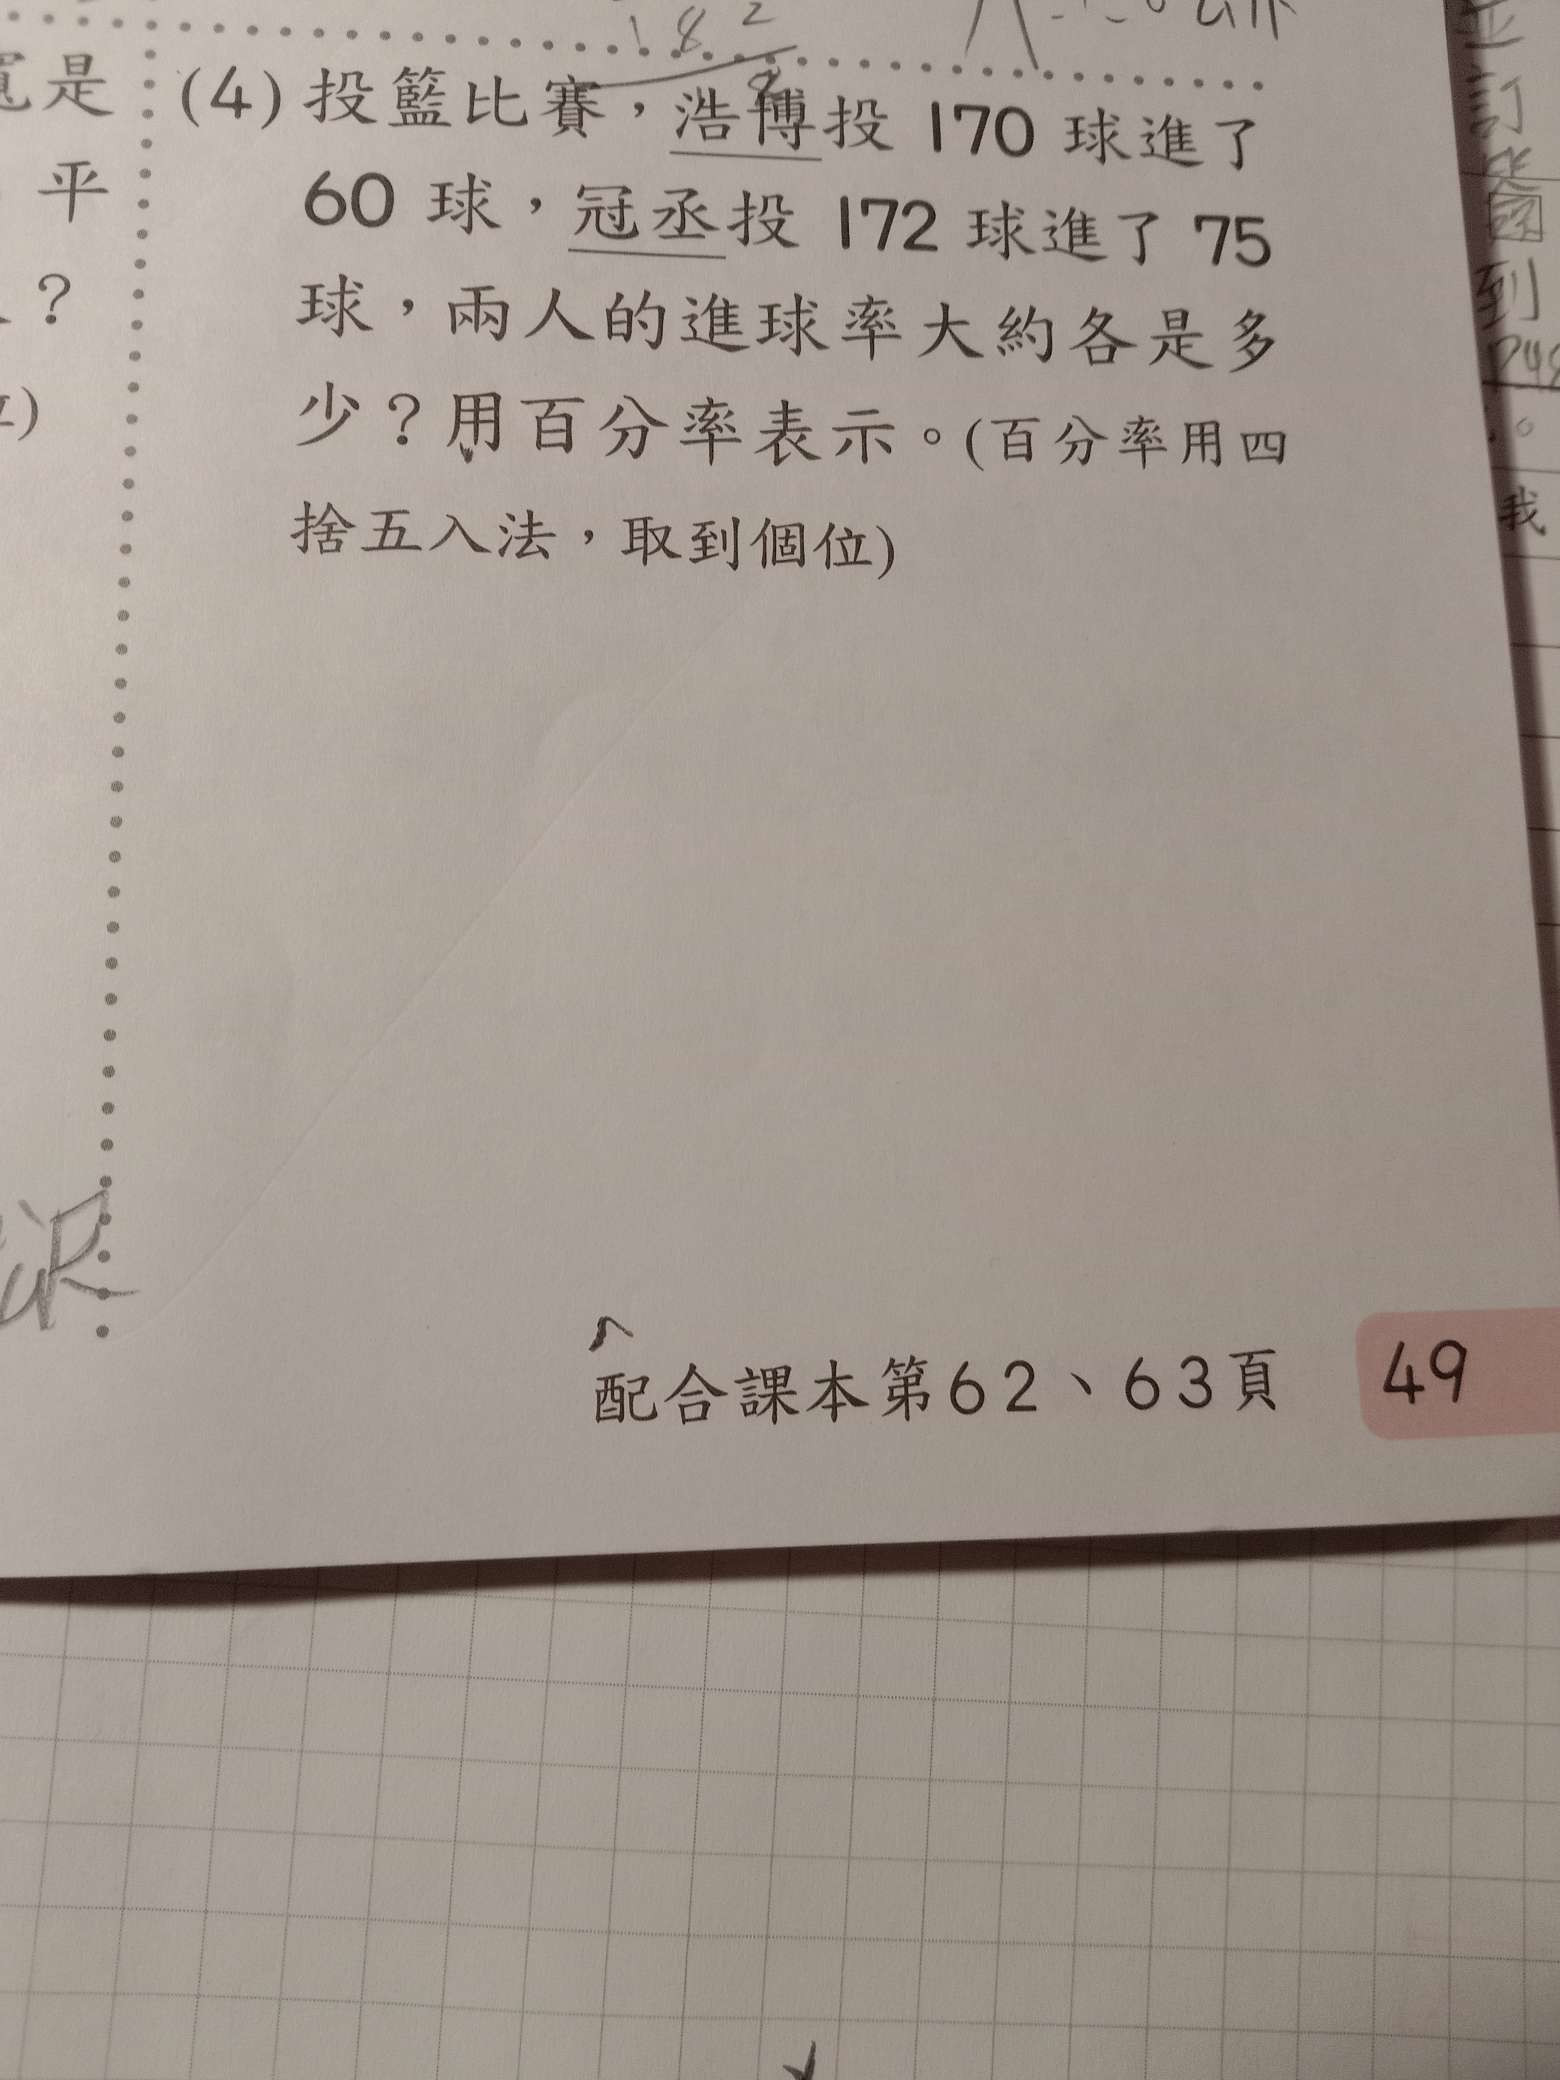 寬是
(4) 投籃比賽，浩博投 170 球進了
平
60 球，冠丞投 172 球進了 75
？
球，兩人的進球率大約各是多
少？用百分率表示。(百分率用四
捨五入法，取到個位)
配合課本第62、63頁
49
到
我